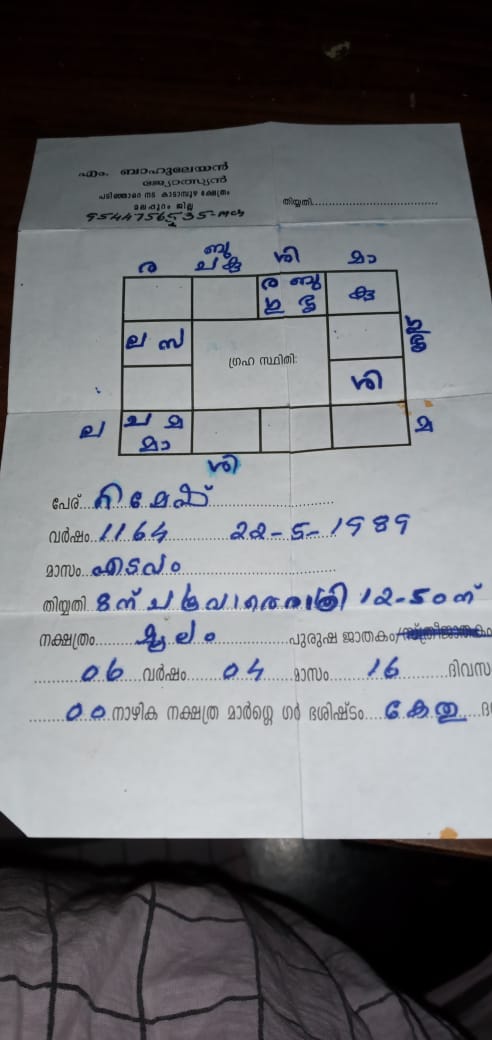 എം. ബാഹുലേയൻ
ജ്യോത്സ്യൻ
പടിഞ്ഞാറെ നട കാടാമ്പുഴ ക്ഷേത്രം
മലപ്പുറം ജില്ല
തിയ്യതി
9544756535-mch
ര ബു ശി മാ
ചകു
ര ബു കു
ഇ ശു
ല സ
ഗ്രഹ സ്ഥിതി:
ശി
ല ച മ മ
മാ
ശി
പേര്
വർഷം 1164 22-5-1989
മാസം എടവം
തിയ്യതി 8ന് 12-50ന്
നക്ഷത്രം മൂലം പുരുഷ ജാതകം/സ്ത്രീജാതകം
06 വർഷം 04 മാസം 16 ദിവസ
00 നാഴിക നക്ഷത്ര മാർഗ്ഗെ ഗർ ഭശിഷ്ടം കേതു ദ